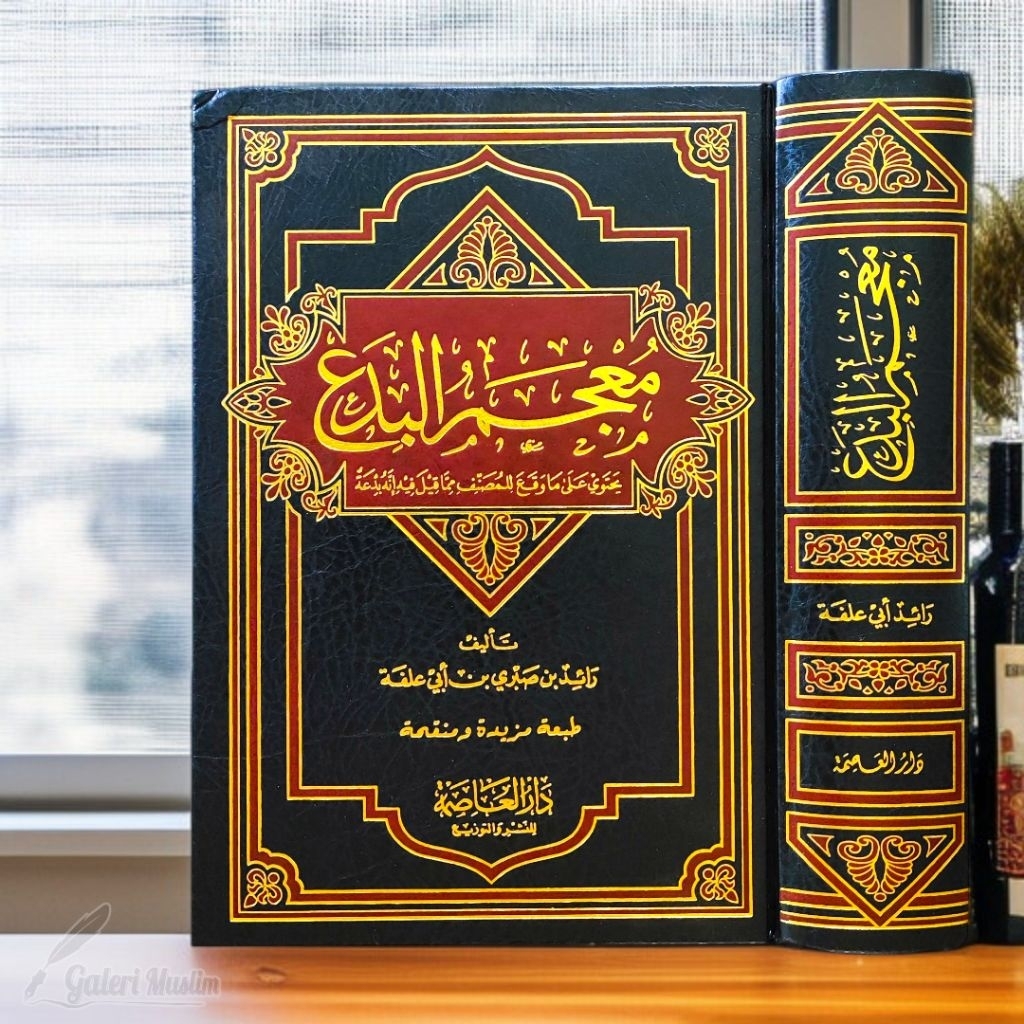 مُعْجَمُ البِدَعِ
يَحْتَوِيْ عَلَىٰ مَا وَقَعَ لِلمُصَنِّفِ مِمَّا قِيْلَ فِيْهِ إِنَّهُ بِدْعَةٌ
تَأليفْ
رَائِد بن صَبْري بن أبي علفَة
طبعة مزيدة ومنقحة
دَارُ العَاصِمَة
لِلنَّشْرِ وَالتَّوزيْع
مُعْجَمُ البِدَعِ
رَائِد أبي علفَة
دَارُ العَاصِمَة
Galeri Muslim